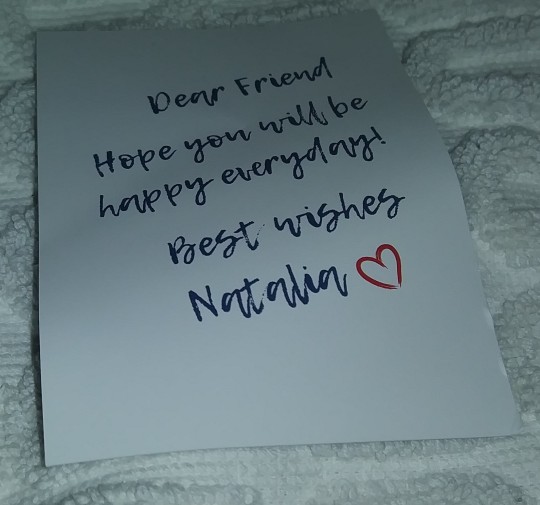 Dear Friend
Hope you will be
happy everyday!
Best wishes
Natalia